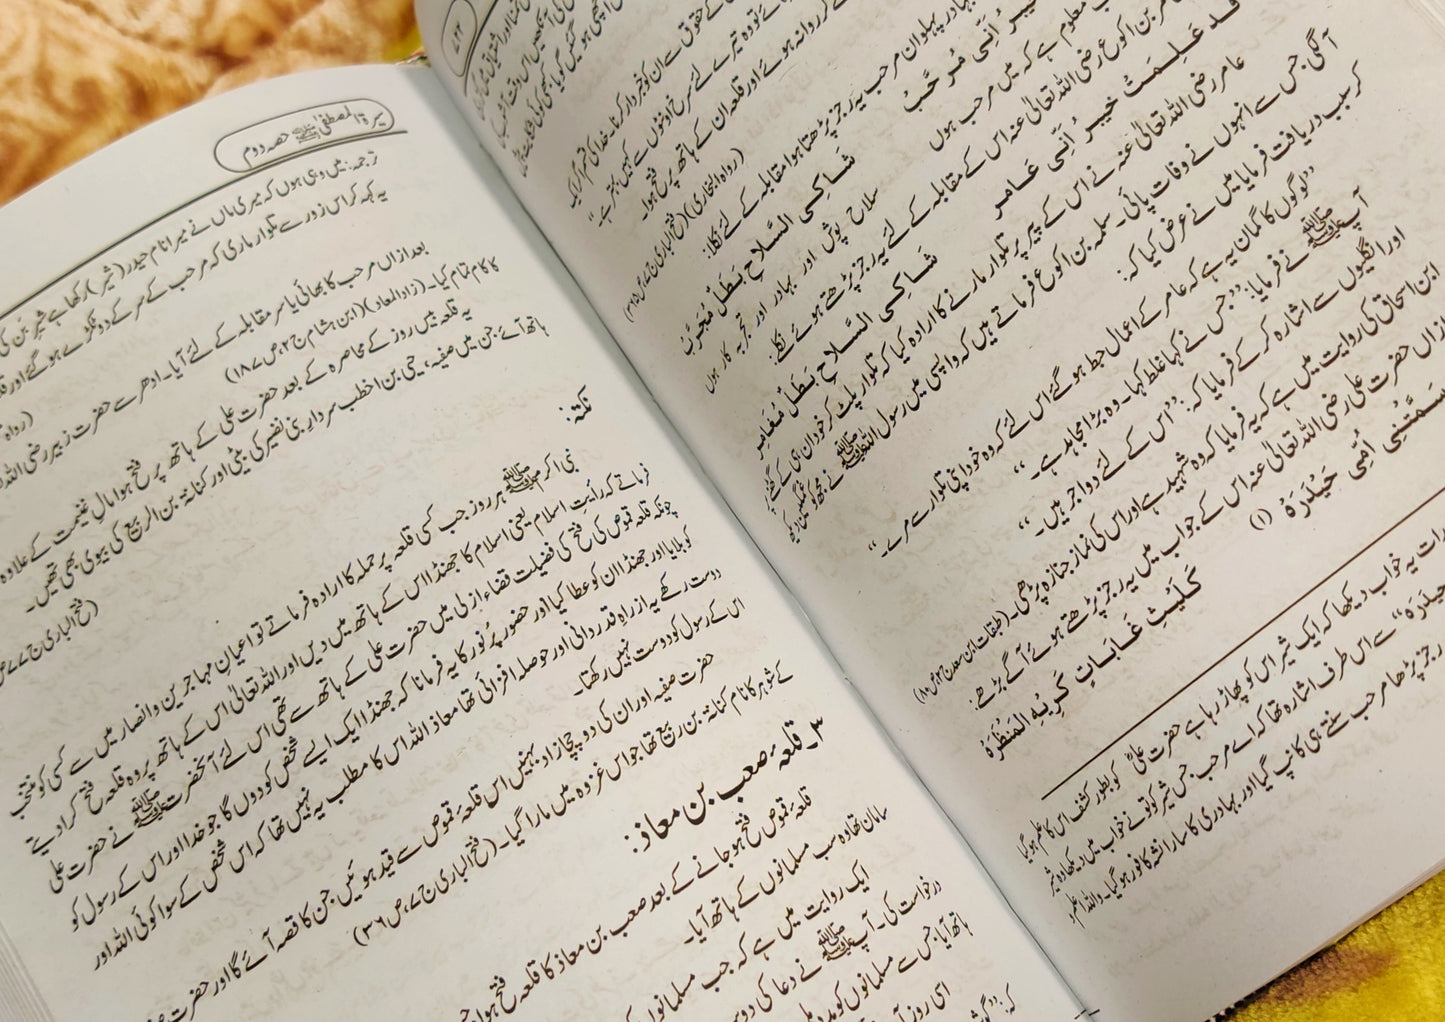 ۷۴
کے حقوق سے ان کو خبردار کرنا۔ خدا کی قسم اگر ایک
تو وہ تیرے لئے سرخ اونٹوں سے کہیں بہتر ہے۔“
روانہ ہوئے اور قلعہ ان کے ہاتھ پر فتح ہوا۔
(رواہ البخاری)(فتح الباری ج۷ ص۳۶۵)
بہادر پہلوان مرحب یہ رجز پڑھتا ہوا مقابلہ کے لئے نکلا:
خیبر اَنِّی مُرَحَّبٌ
شَاکِی السَّلاحِ بَطَلٌ مُجَرَّبٌ
معلوم ہے کہ میں مرحب ہوں
سلاح پوش اور بہادر اور تجربہ کار ہوں
عامر بن اکوع رضی اللہ تعالیٰ عنہ اس کے مقابلہ کے لئے یہ رجز پڑھتے ہوئے نکلے:
قد عَلِمَتْ خیبر اَنِّی عَامر
شَاکِی السَّلاحِ بَطَلٌ مُغَامر
عامر رضی اللہ تعالیٰ عنہ نے اس کے پیر پر تلوار مارنے کا ارادہ کیا کہ تلوار پلٹ کر خود ان ہی کے گھٹنے پر
آلگی۔ جس سے انہوں نے وفات پائی۔ سلمہ بن اکوع فرماتے ہیں کہ واپسی میں رسول اللہ ﷺ نے مجھ کو غمگین دیکھ
کر سبب دریافت فرمایا میں نے عرض کیا کہ:
”لوگوں کا گمان یہ ہے کہ عامر کے اعمال حبط ہو گئے اس لئے کہ وہ خود اپنی تلوار سے مرے۔“
آپ ﷺ نے فرمایا: ”جس نے کہا غلط کہا۔ وہ بڑا مجاہد ہے۔“
اور انگلیوں سے اشارہ کر کے فرمایا کہ: ”اس کے لئے دو اجر ہیں۔“
ابن اسحاق کی روایت میں ہے کہ یہ فرمایا کہ وہ شہید ہے اور اس کی نماز جنازہ پڑھی۔ (طبقات ابن سعد
ازاں حضرت علی رضی اللہ تعالیٰ عنہ اس کے جواب میں یہ رجز پڑھتے ہوئے آگے بڑھے:
سَمَّتْنِی اُمِّی حَیْدَرَہُ (۱)
کَلَیْثِ غَابَاتٍ کَرِیْہِ المَنْظَرَہْ
رات یہ خواب دیکھا کہ ایک شیر اس کو پھاڑ رہا ہے حضرت علیؓ کو بطور کشف اس کا علم ہو گیا
حَیدَرَہ“ سے اس طرف اشارہ تھا کہ اے مرحب جس شیر کو تو نے خواب میں دیکھا وہ شیر
رجز پڑھا مرحب سنتے ہی کانپ گیا اور بہادری کا سارا نشہ کافور ہو گیا۔ واللہ اعلم
سیرۃ المصطفیٰ ﷺ حصہ دوم
ترجمہ: میں وہی ہوں کہ میری ماں نے میرا نام حیدر (شیر) رکھا ہے شیر بَن کی
یہ کہہ کر اس زور سے تلوار ماری کہ مرحب کے سر کے دو ٹکڑے ہو گئے اور
(رواہ
بعد ازاں مرحب کا بھائی یاسر مقابلہ کے لئے آیا۔ ادھر سے حضرت زبیر رضی اللہ
کا کام تمام کیا۔ (زاد المعاد)(ابن ہشام ج۲ ص۱۸۷)
یہ قلعہ بیس روز کے محاصرہ کے بعد حضرت علی کے ہاتھ پر فتح ہوا مالِ غنیمت کے علاوہ
ہاتھ آئے جن میں صفیہ، حیی بن اخطب سردارِ بنی نضیر کی بیٹی اور کنانۃ بن الربیع کی بیوی بھی تھیں۔
(فتح الباری ج۷
نکتہ:
نبی اکرم ﷺ ہر روز جب کسی قلعہ پر حملہ کا ارادہ فرماتے تو اعیانِ مہاجرین و انصار میں سے کسی کو منتخب
فرماتے کہ رأیت اسلام یعنی اسلام کا جھنڈا اس کے ہاتھ میں دیں اور اللہ تعالیٰ اس کے ہاتھ پر وہ قلعہ فتح کرا دیتے
چونکہ قلعہ قموص کی فتح کی فضیلت قضاء ازلی میں حضرت علی کے ہاتھ سے تھی اس لئے آنحضرت ﷺ نے حضرت علی
کو بلایا اور جھنڈا ان کو عطا کیا اور حضور پر نور کا یہ فرمانا کہ جھنڈا ایک ایسے شخص کو دوں گا جو خدا اور اس کے رسول کو
دوست رکھے یہ از راہِ قدر دانی اور حوصلہ افزائی تھا معاذ اللہ اس کا مطلب یہ نہیں تھا کہ اس شخص کے سوا کوئی اللہ اور
اس کے رسول کو دوست نہیں رکھتا۔
حضرت صفیہ اور ان کی دو چچازاد بہنیں اس قلعہ قموص سے قید ہوئیں جن کا قصہ آئے گا اور حضرت
کے شوہر کا نام کنانۃ بن ربیع تھا جو اس غزوہ میں مارا گیا۔ (فتح الباری ج۷، ص۳۶۰)
۳۔ قلعہ صعب بن معاذ:
قلعہ قموص فتح ہو جانے کے بعد صعب بن معاذ کا قلعہ فتح ہوا
سامان تھا وہ سب مسلمانوں کے ہاتھ آیا۔
ایک روایت میں ہے کہ جب مسلمانوں
درخواست کی۔ آپ ﷺ نے دعا کی دوسرے
ہاتھ آیا: جس سے مسلمانوں کو مدد
اسی روز آپ
کہ: